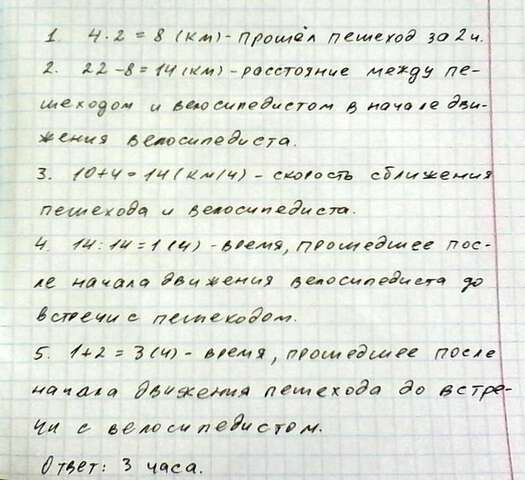 1. 4·2 = 8 (км) - прошёл пешеход за 2ч.
2. 22-8=14(км) - расстояние между пе-
шеходом и велосипедистом в начале дви-
жения велосипедиста.
3. 10+4=14(км/ч) - скорость сближения
пешехода и велосипедиста.
4. 14:14=1(ч) - время, прошедшее пос-
ле начала движения велосипедиста до
встречи с пешеходом.
5. 1+2=3(ч) - время, прошедшее после
начала движения пешехода до встре-
чи с велосипедистом.
Ответ: 3 часа.